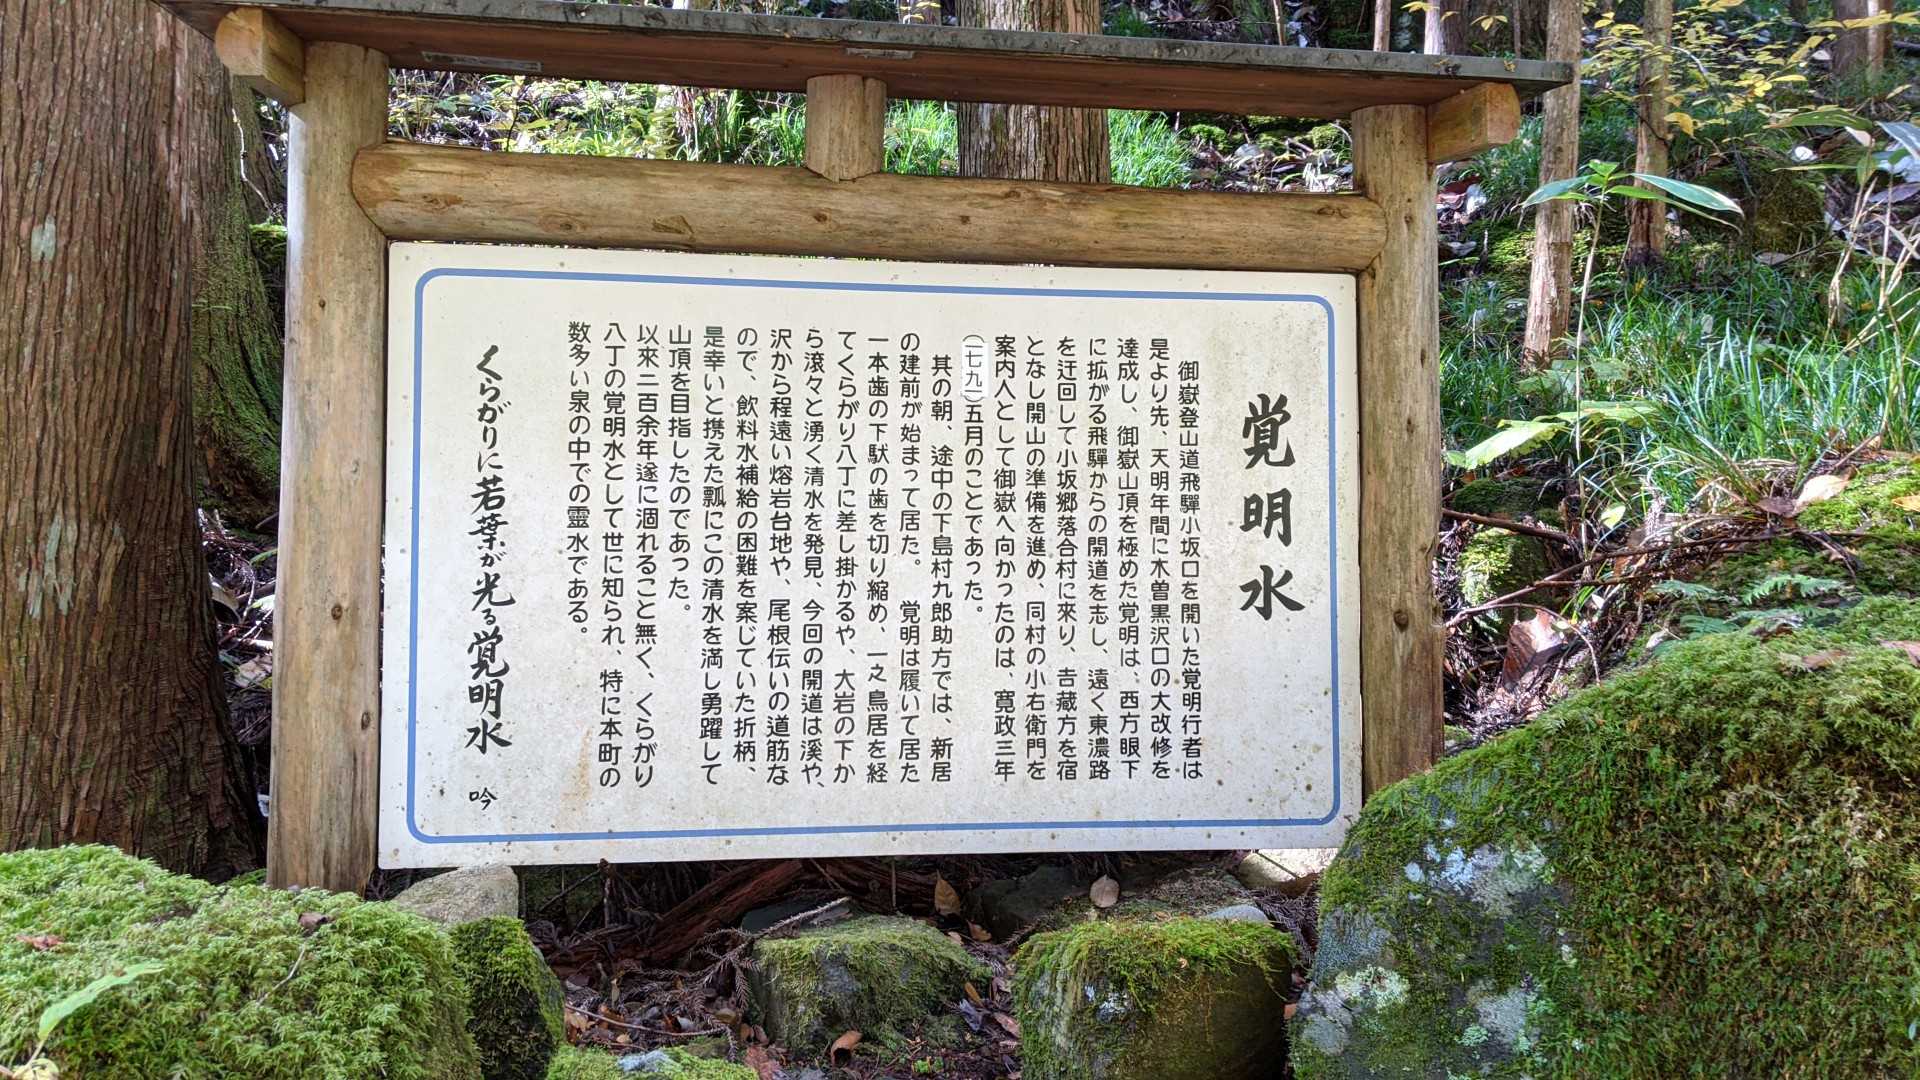 覚明水
御嶽登山道飛騨小坂口を開いた覚明行者は
是より先、天明年間に木曽黒沢口の大改修を
達成し、御嶽山頂を極めた覚明は、西方眼下
に拡がる飛騨からの開道を志し、遠く東濃路
を迂回して小坂郷落合村に來り、吉蔵方を宿
となし開山の準備を進め、同村の小右衛門を
案内人として御嶽へ向かったのは、寛政三年
(一七九一)五月のことであった。
其の朝、途中の下島村九郎助方では、新居
の建前が始まって居た。 覚明は履いて居た
一本歯の下駄の歯を切り縮め、一之鳥居を経
てくらがり八丁に差し掛かるや、大岩の下か
ら滾々と湧く清水を発見、今回の開道は溪や、
沢から程遠い熔岩台地や、尾根伝いの道筋な
ので、飲料水補給の困難を案じていた折柄、
是幸いと携えた瓢にこの清水を満し勇躍して
山頂を目指したのであった。
以來二百余年遂に涸れること無く、くらがり
八丁の覚明水として世に知られ、特に本町の
数多い泉の中での靈水である。
くらがりに若葉が光る覚明水 吟